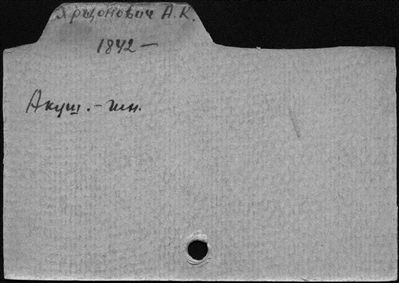 Хрщонович А.К.
1842 —
Акуш.-гин.